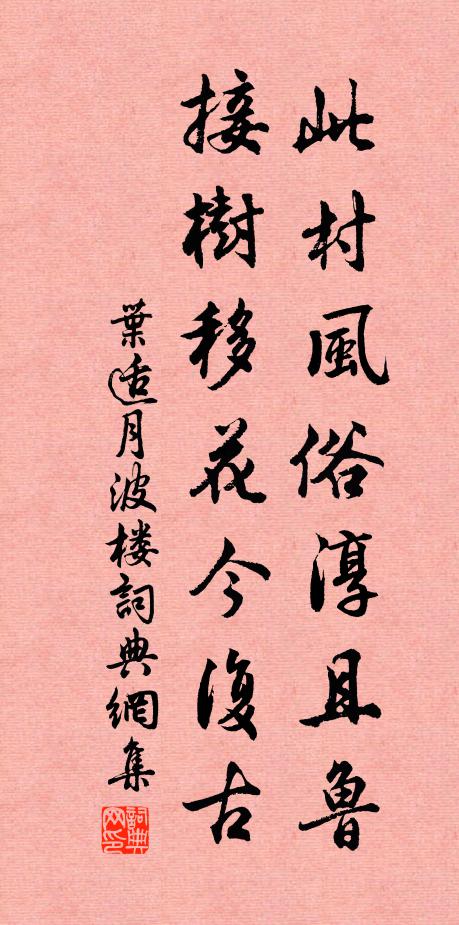 此村風俗淳且魯
接樹移花今復古
葉适月波楼詞典網集
詞典网印